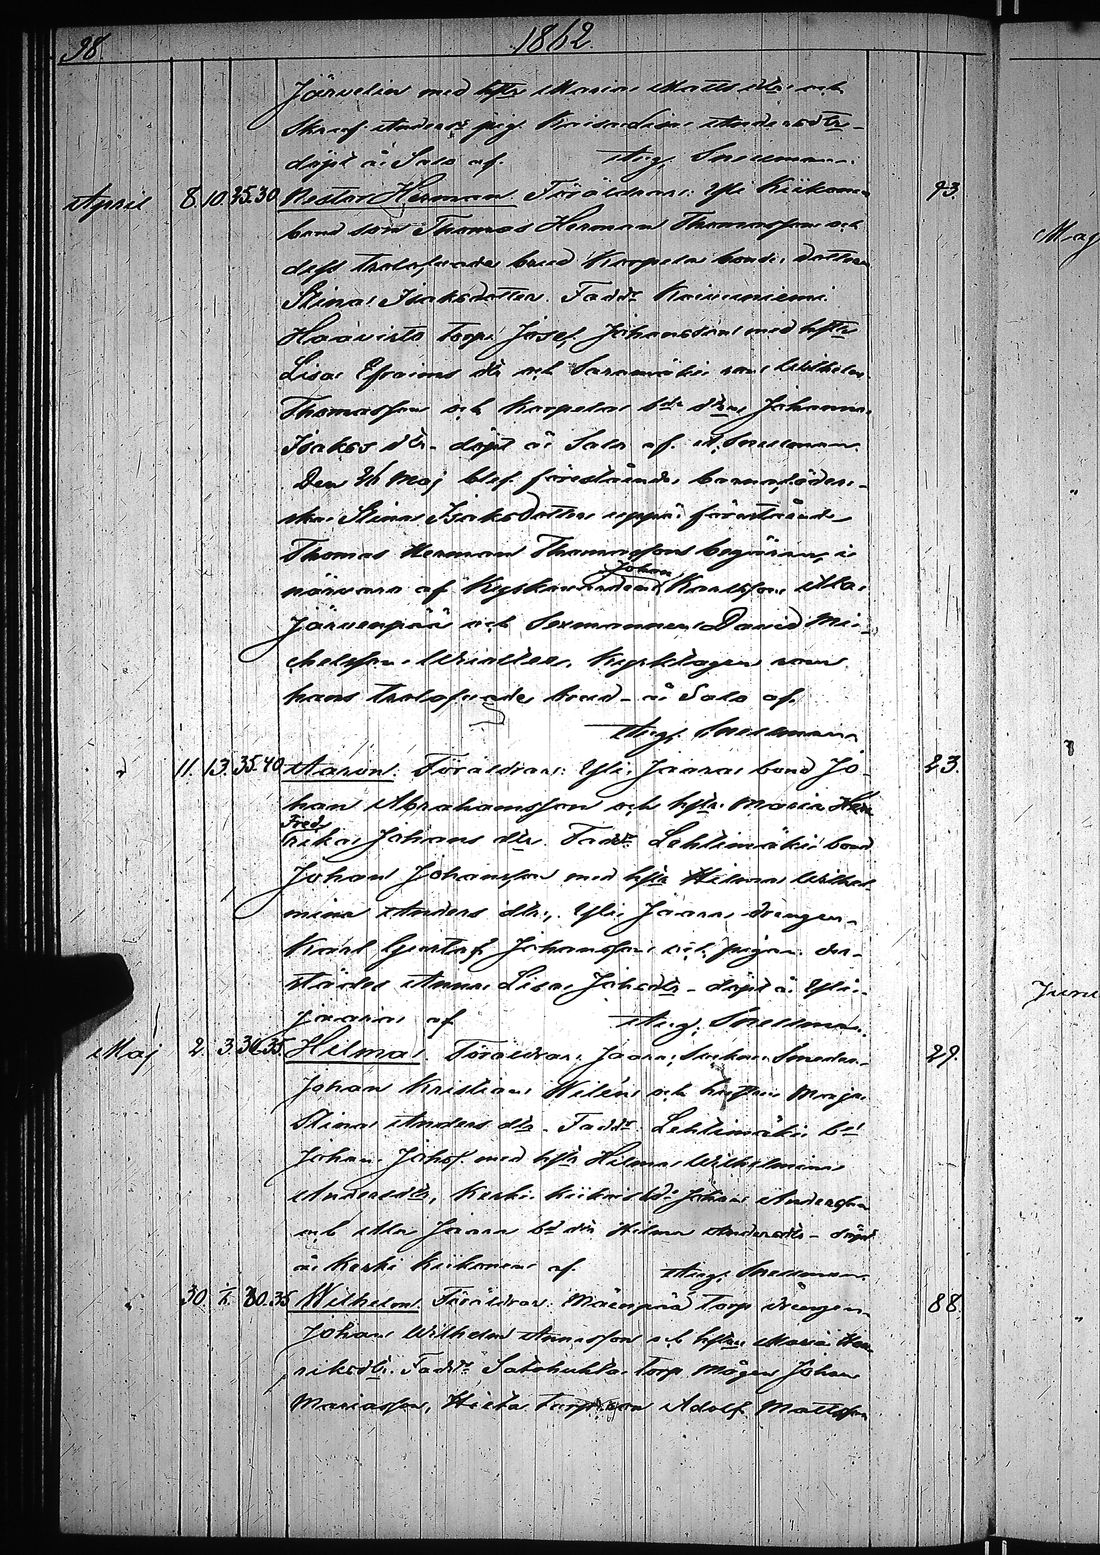 98. 1862.
Järvelin med hstr Maria Matts dtr och
Skräd. Anders pig. Kaisa Lisa Andersdtr -
döpt å Salo af. Aug. Snellman.
April 8. 10. 35. 30. Nestor Herman. Föräldrar: Yli Kiikoin 93.
bond son Thomas Herman Thomasson och
dess trolofvade brud Korpela bonde dottern
Stina Isaksdotter. Faddr
Haavisto torp. Josef Johansson med hstr
Lisa Efraims dtr och son Wilhelm
Thomasson och Korpela bde dtrn Johanna
Isaks dtr - döpt å Salo af A. Snellman.
Den Maj blef förestående barnaföder-
ska Stina Isaksdotter uppå förestående
Thomas Herman Thomassons begäran, i
Johan
närvaro af Kyrkovärden Karlsson Ala
Järvenpää och Sexmannen David Mi-
chelsson Kyrktagen som
hans trolofvade brud - å Salo af
Aug. Snellman.
11. 13. 35. 40. Aaron. Föräldrar: Yli Jaara bond Jo- 23.
han Abrahamsson och hstr. Maria
Fred
rika Johans dtr. Faddr. Lehtimäki bond
Johan Johansson med hstr Hilma Wilhel
mina Anders dtr, Yli Jaara drängen
Karl Gustaf Johansson och pigan der-
städes Anna Lisa Johsdtr - döpt å Yli-
jaara af Aug. Snellman.
Maj 2. 3. 35. Hilma. Föräldrar: Jaara Smeden 29.
Johan Kristian Wilén och hustrun Maja
Stina Anders dtr. Faddr. Lehtimäki bd
Johan Johsf. med hstr Hilma Wilhelmina
Andersdtr, Keski Kiikoin bd: Johan Andersson
och Ala Jaara bd dtr Hilma Andersdtr - döpt
å Keski Kiikoinen af Aug. Snellman.
30. 30. 35. Wilhelm. Föräldrar: Mäenpää torp drängen 88.
Johan Wilhelm och hstrn Maria Hen
riksdtr. Faddr. Satohuhta torp. Mågen Johan
Mariasson, Hieta Adolf Mattsson
Maj
Juni